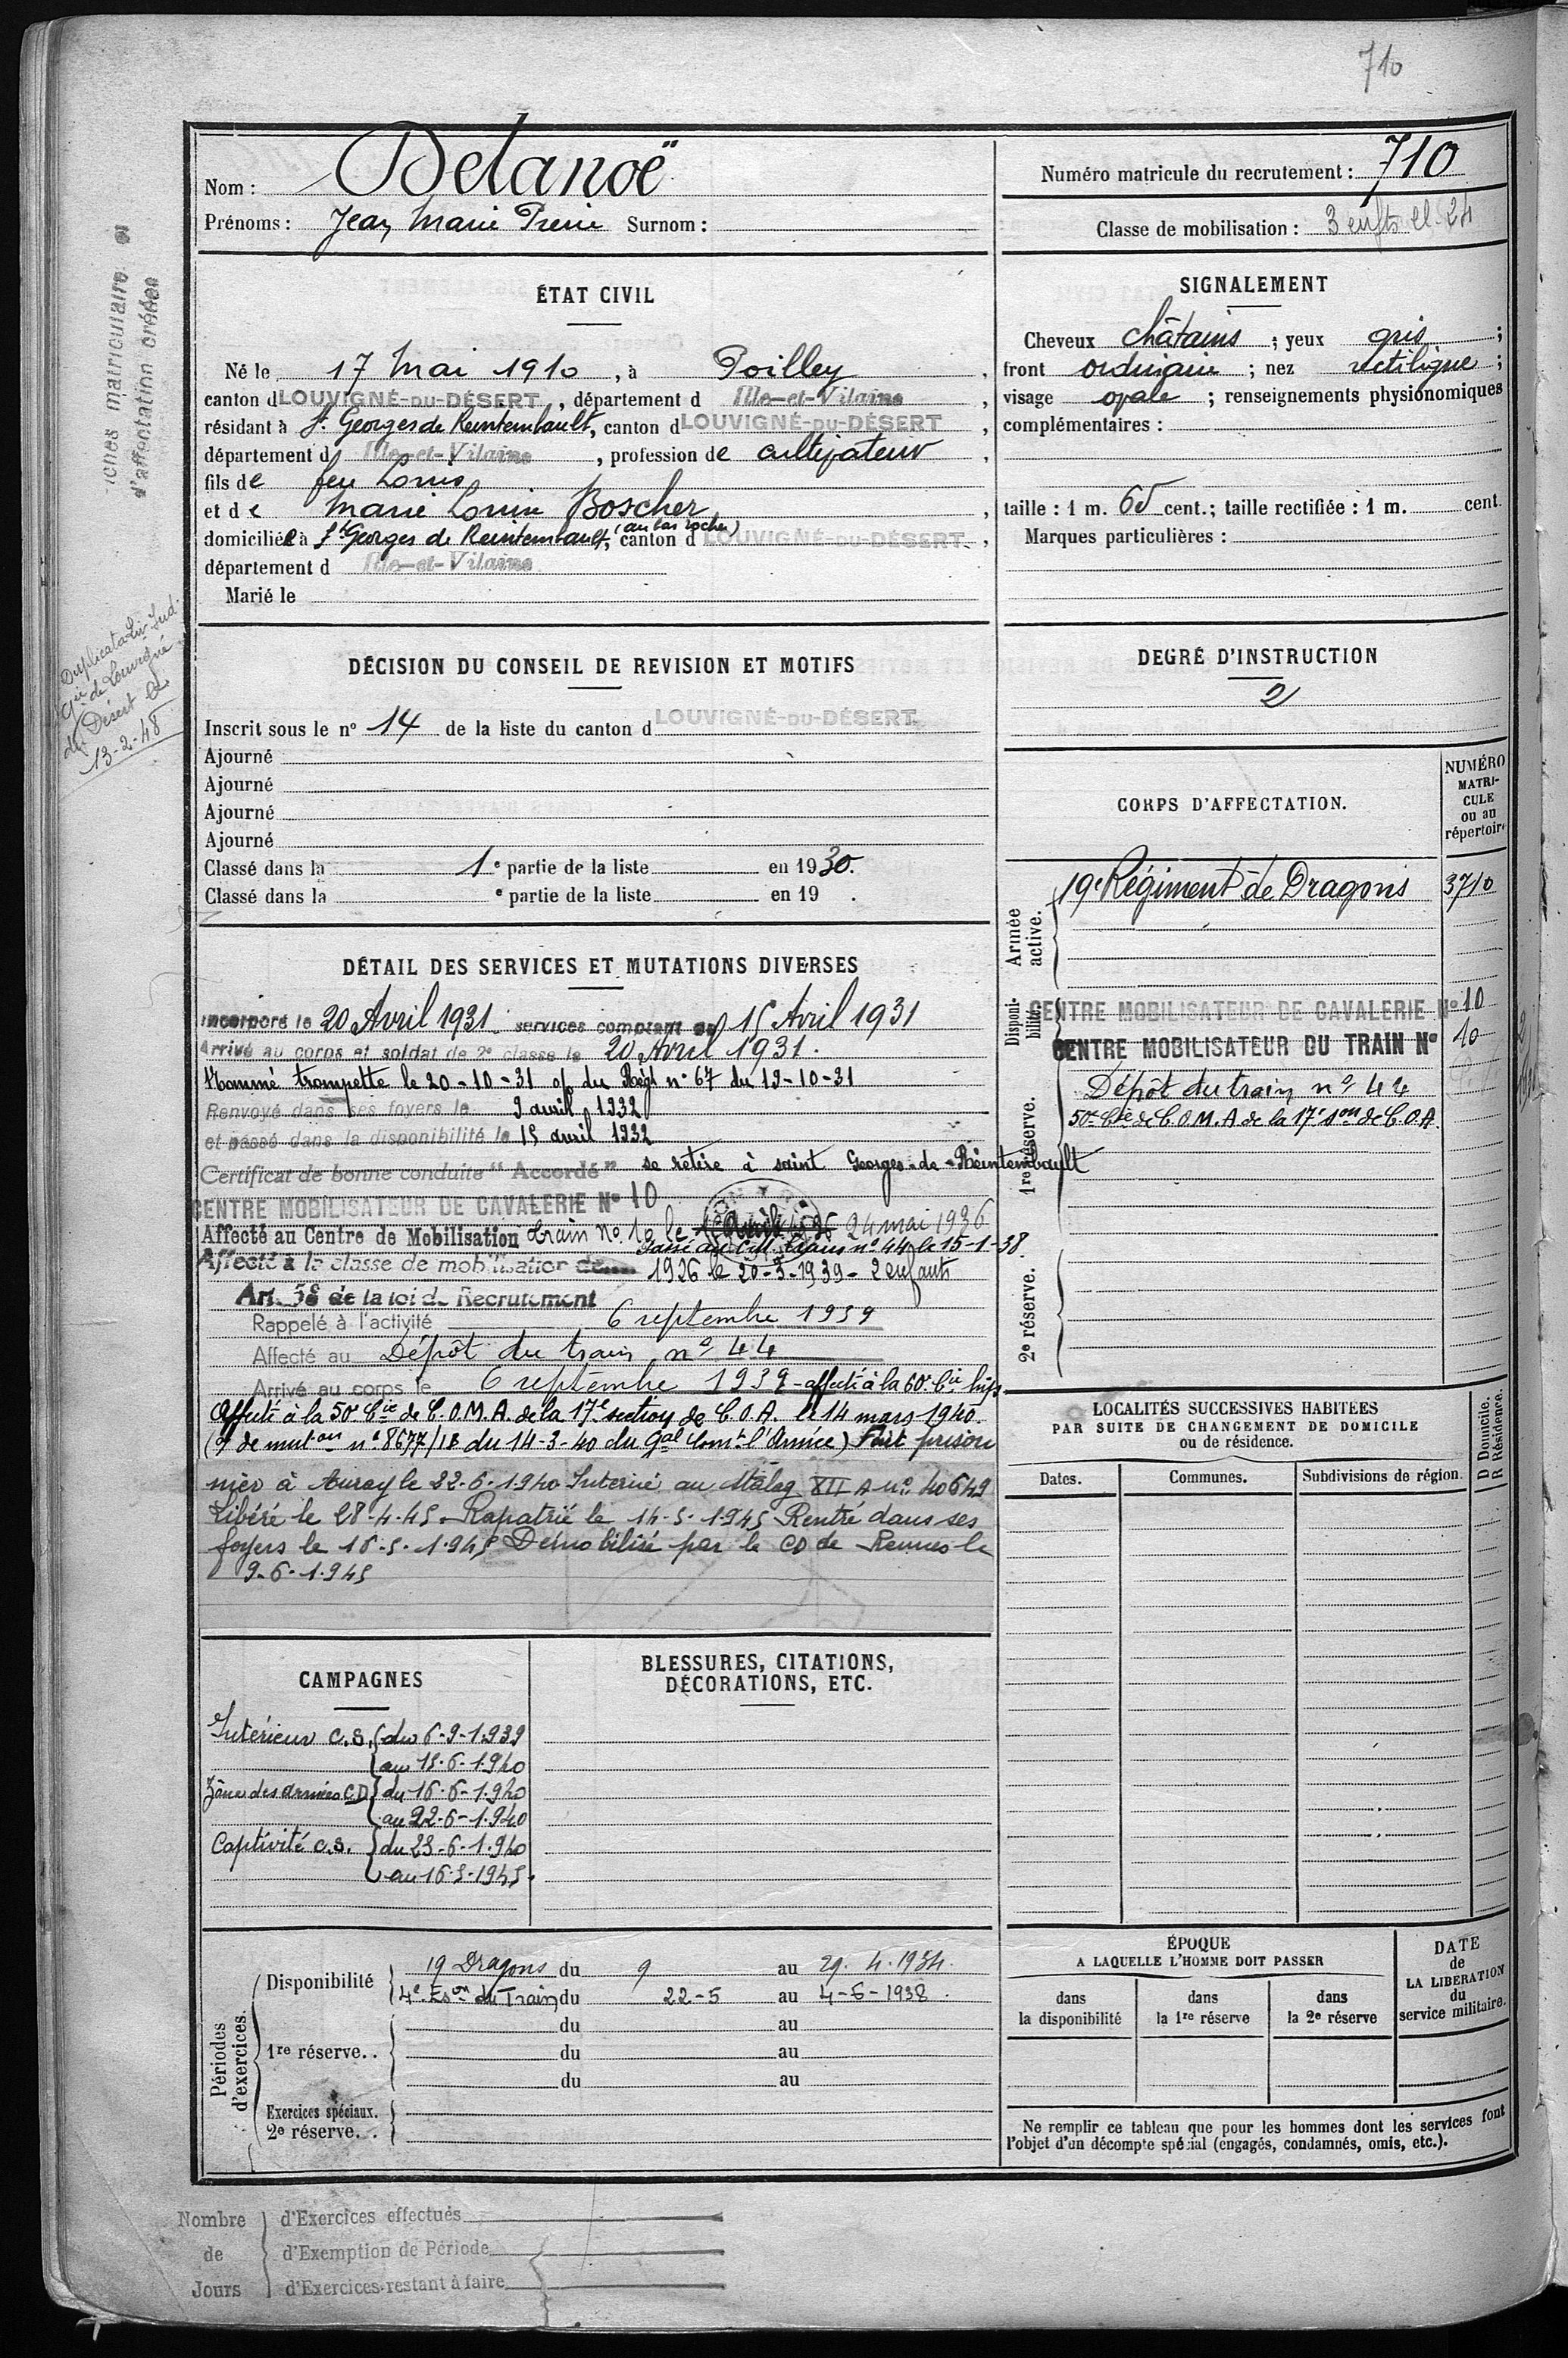 710
Nom : Delanoë
Prénoms : Jean Marie Pierre Surnom :
Numéro matricule du recrutement : 710
Classe de mobilisation : 3 enfts cl. 24
fiches matriculaire et
d'affectation créées
Duplicata Liv. Ind.
Gie de Louvigné
du Désert le
13-2-48
ÉTAT CIVIL
Né le 17 Mai 1910, à Poilley,
canton d LOUVIGNÉ-DU-DÉSERT, département d Ille-et-Vilaine,
résidant à St Georges de Reintembault, canton d LOUVIGNÉ-DU-DÉSERT,
département d Ille-et-Vilaine, profession de cultivateur,
fils de feu Louis
et de Marie Louise Boscher,
(au bas rocher)
domiciliée à St Georges de Reintembault, canton d LOUVIGNÉ-DU-DÉSERT,
département d Ille-et-Vilaine
Marié le
SIGNALEMENT
Cheveux châtains ; yeux gris ;
front ordinaire ; nez rectiligne ;
visage ovale ; renseignements physionomiques
complémentaires :
taille : 1 m. 65 cent.; taille rectifiée : 1 m. cent.
Marques particulières :
DÉCISION DU CONSEIL DE REVISION ET MOTIFS
Inscrit sous le nº 14 de la liste du canton d LOUVIGNÉ-DU-DÉSERT.
Ajourné
Ajourné
Ajourné
Ajourné
Classé dans la 1e partie de la liste en 1930.
Classé dans la e partie de la liste en 19 .
DEGRÉ D'INSTRUCTION
2
CORPS D'AFFECTATION.
NUMÉRO
MATRI-
CULE
ou au
répertoire
Armée
active.
19e Régiment de Dragons 3710
Disponi-
bilité.
CENTRE MOBILISATEUR DE CAVALERIE Nº 10
CENTRE MOBILISATEUR DU TRAIN Nº 10
1re réserve.
Dépôt du train nº 44
50e Cie de C.O.M.A de la 17e Son de C.O.A
2e réserve.
DÉTAIL DES SERVICES ET MUTATIONS DIVERSES
Incorporé le 20 Avril 1931 services comptant du 15 Avril 1931
Arrivé au corps et soldat de 2e classe le 20 Avril 1931.
Nommé trompette le 20-10-31 o/ du Regt nº 67 du 19-10-31
Renvoyé dans ses foyers le 9 avril 1932
et passé dans la disponibilité le 15 avril 1932
Certificat de bonne conduite "Accordé" se retire à saint Georges-de-Reintembault
CENTRE MOBILISATEUR DE CAVALERIE Nº 10
Affecté au Centre de Mobilisation train No 10 le 24 mai 1936
Passé au C.M. train nº 44 le 15-1-38.
Affecté à la classe de mobilisation de 1926 le 20-3-1939 - 2 enfants
Art. 58 de la loi de Recrutement
Rappelé à l'activité 6 septembre 1939
Affecté au Dépôt du train nº 44
Arrivé au corps le 6 septembre 1939 - affecté à la 60e Cie hip.
Affecté à la 50e Cie de C.O.M.A. de la 17e section de C.O.A. le 14 mars 1940.
(o/ de muton nº 8677/1B du 14-3-40 du Gal Comt l'Armée) Fait prison
nier à Auray le 22-6-1940 Interné au Stalag XII A nº 40649
Libéré le 28-4-45. Rapatrié le 14-5-1945 Rentré dans ses
foyers le 16-5-1945 Démobilisé par le CD de Rennes le
9-6-1945
LOCALITÉS SUCCESSIVES HABITÉES
PAR SUITE DE CHANGEMENT DE DOMICILE
ou de résidence.
D Domicile.
R Résidence.
Dates. Communes. Subdivisions de région.
CAMPAGNES
Intérieur C.S. du 6-9-1939
au 15-6-1940
Zône des armées C.D du 16-6-1940
au 22-6-1940
Captivité C.S. du 23-6-1940
au 16-5-1945.
BLESSURES, CITATIONS,
DÉCORATIONS, ETC.
Périodes
d'exercices.
Disponibilité 19 Dragons du 9 au 29. 4. 1934.
4e Eson du Train du 22-5 au 4-6-1938.
du au
1re réserve.. du au
du au
Exercices spéciaux.
2e réserve...
ÉPOQUE
A LAQUELLE L'HOMME DOIT PASSER
dans
la disponibilité
dans
la 1re réserve
dans
la 2e réserve
DATE
de
LA LIBÉRATION
du
service militaire.
Ne remplir ce tableau que pour les hommes dont les services font
l'objet d'un décompte spécial (engagés, condamnés, omis, etc.).
Nombre
de
Jours
d'Exercices effectués
d'Exemption de Période
d'Exercices restant à faire